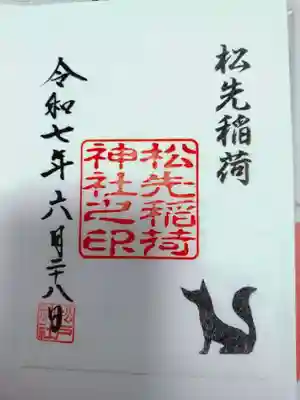 松先稲荷
松先稲荷
神社之印
令和七年六月二十八日